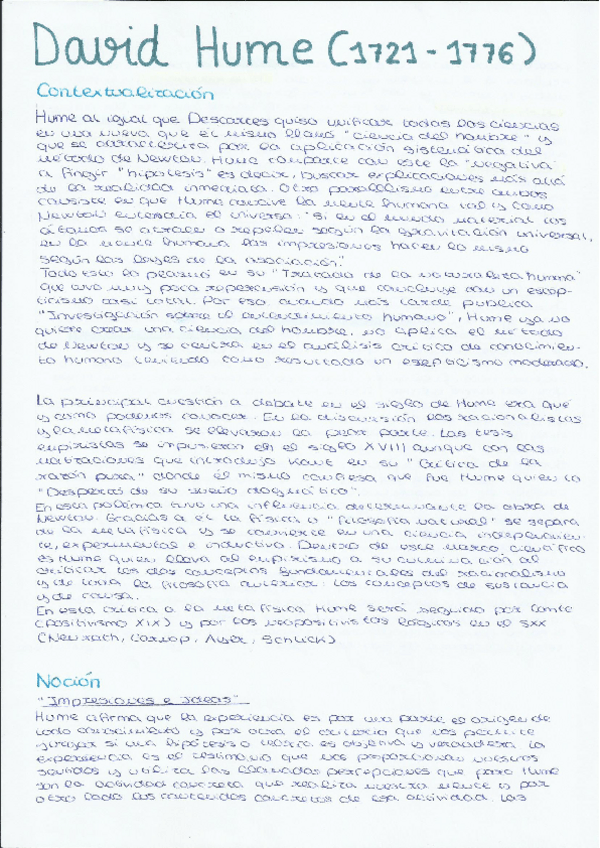 David Hume (1721 - 1776)
Contextualización
Hume al igual que Descartes quiso unificar todas las ciencias
en una nueva que él mismo llamó "ciencia del hombre" y
que se caracteriza por la aplicación sistemática del
método de Newton. Hume comparte con este la "negativa
a fingir "hipótesis" es decir, buscar explicaciones más allá
de la realidad inmediata. Otro paralelismo entre ambos
consiste en que Hume concibe la mente humana tal y como
Newton entendía el universo: "si en el mundo material los
se atraen o repelen según la gravitación universal,
en la mente humana las impresiones hacen lo mismo
según las leyes de la asociación".
Todo esto lo plasmó en su "Tratado de la naturaleza humana"
que tuvo muy poca repercusión y que concluye con un escep-
ticismo casi total. Por eso cuando más tarde publica
"Investigación sobre el entendimiento humano", Hume ya no
quiere crear una ciencia del hombre, no aplica el método
de Newton y se centra en el análisis crítico de conocimien-
to humano teniendo como resultado un escepticismo moderado.
La principal cuestión a debate en el siglo de Hume era qué
y como podemos conocer. En la discusión los racionalistas
y la metafísica se llevaron la peor parte. Las tesis
empiristas se impusieron en el siglo XVIII aunque con las
matizaciones que introdujo Kant en su "Crítica de la
razón pura" donde él mismo confiesa que fue Hume quien lo
"Despertó de su sueño dogmático".
En esta polémica tuvo una influencia determinante la obra de
Newton. Gracias a él la física o "filosofía natural" se separa
de la metafísica y se convierte en una ciencia independien-
te, experimental e inductiva. Dentro de este marco científico
es Hume quien lleva al empirismo a su culminación al
criticar los dos conceptos fundamentales del racionalismo
y de toda la filosofía anterior: los conceptos de sustancia
y de causa.
En esta crítica a la metafísica Hume será seguido por Comte
(positivismo XIX) y por los neopositivistas lógicos en el SXX
(Neurath, Carnap, Ayer, Schlick)
Noción
"Impresiones e Ideas"
Hume afirma que la experiencia es por una parte el origen de
todo conocimiento y por otra el criterio que nos permite
juzgar si una hipótesis o teoría es objetiva y verdadera. La
experiencia es el testimonio que nos proporcionan nuestros
sentidos y utiliza las llamadas percepciones que para Hume
son la actividad concreta que realiza nuestra mente y por
otro lado los contenidos concretos de esa actividad. Las